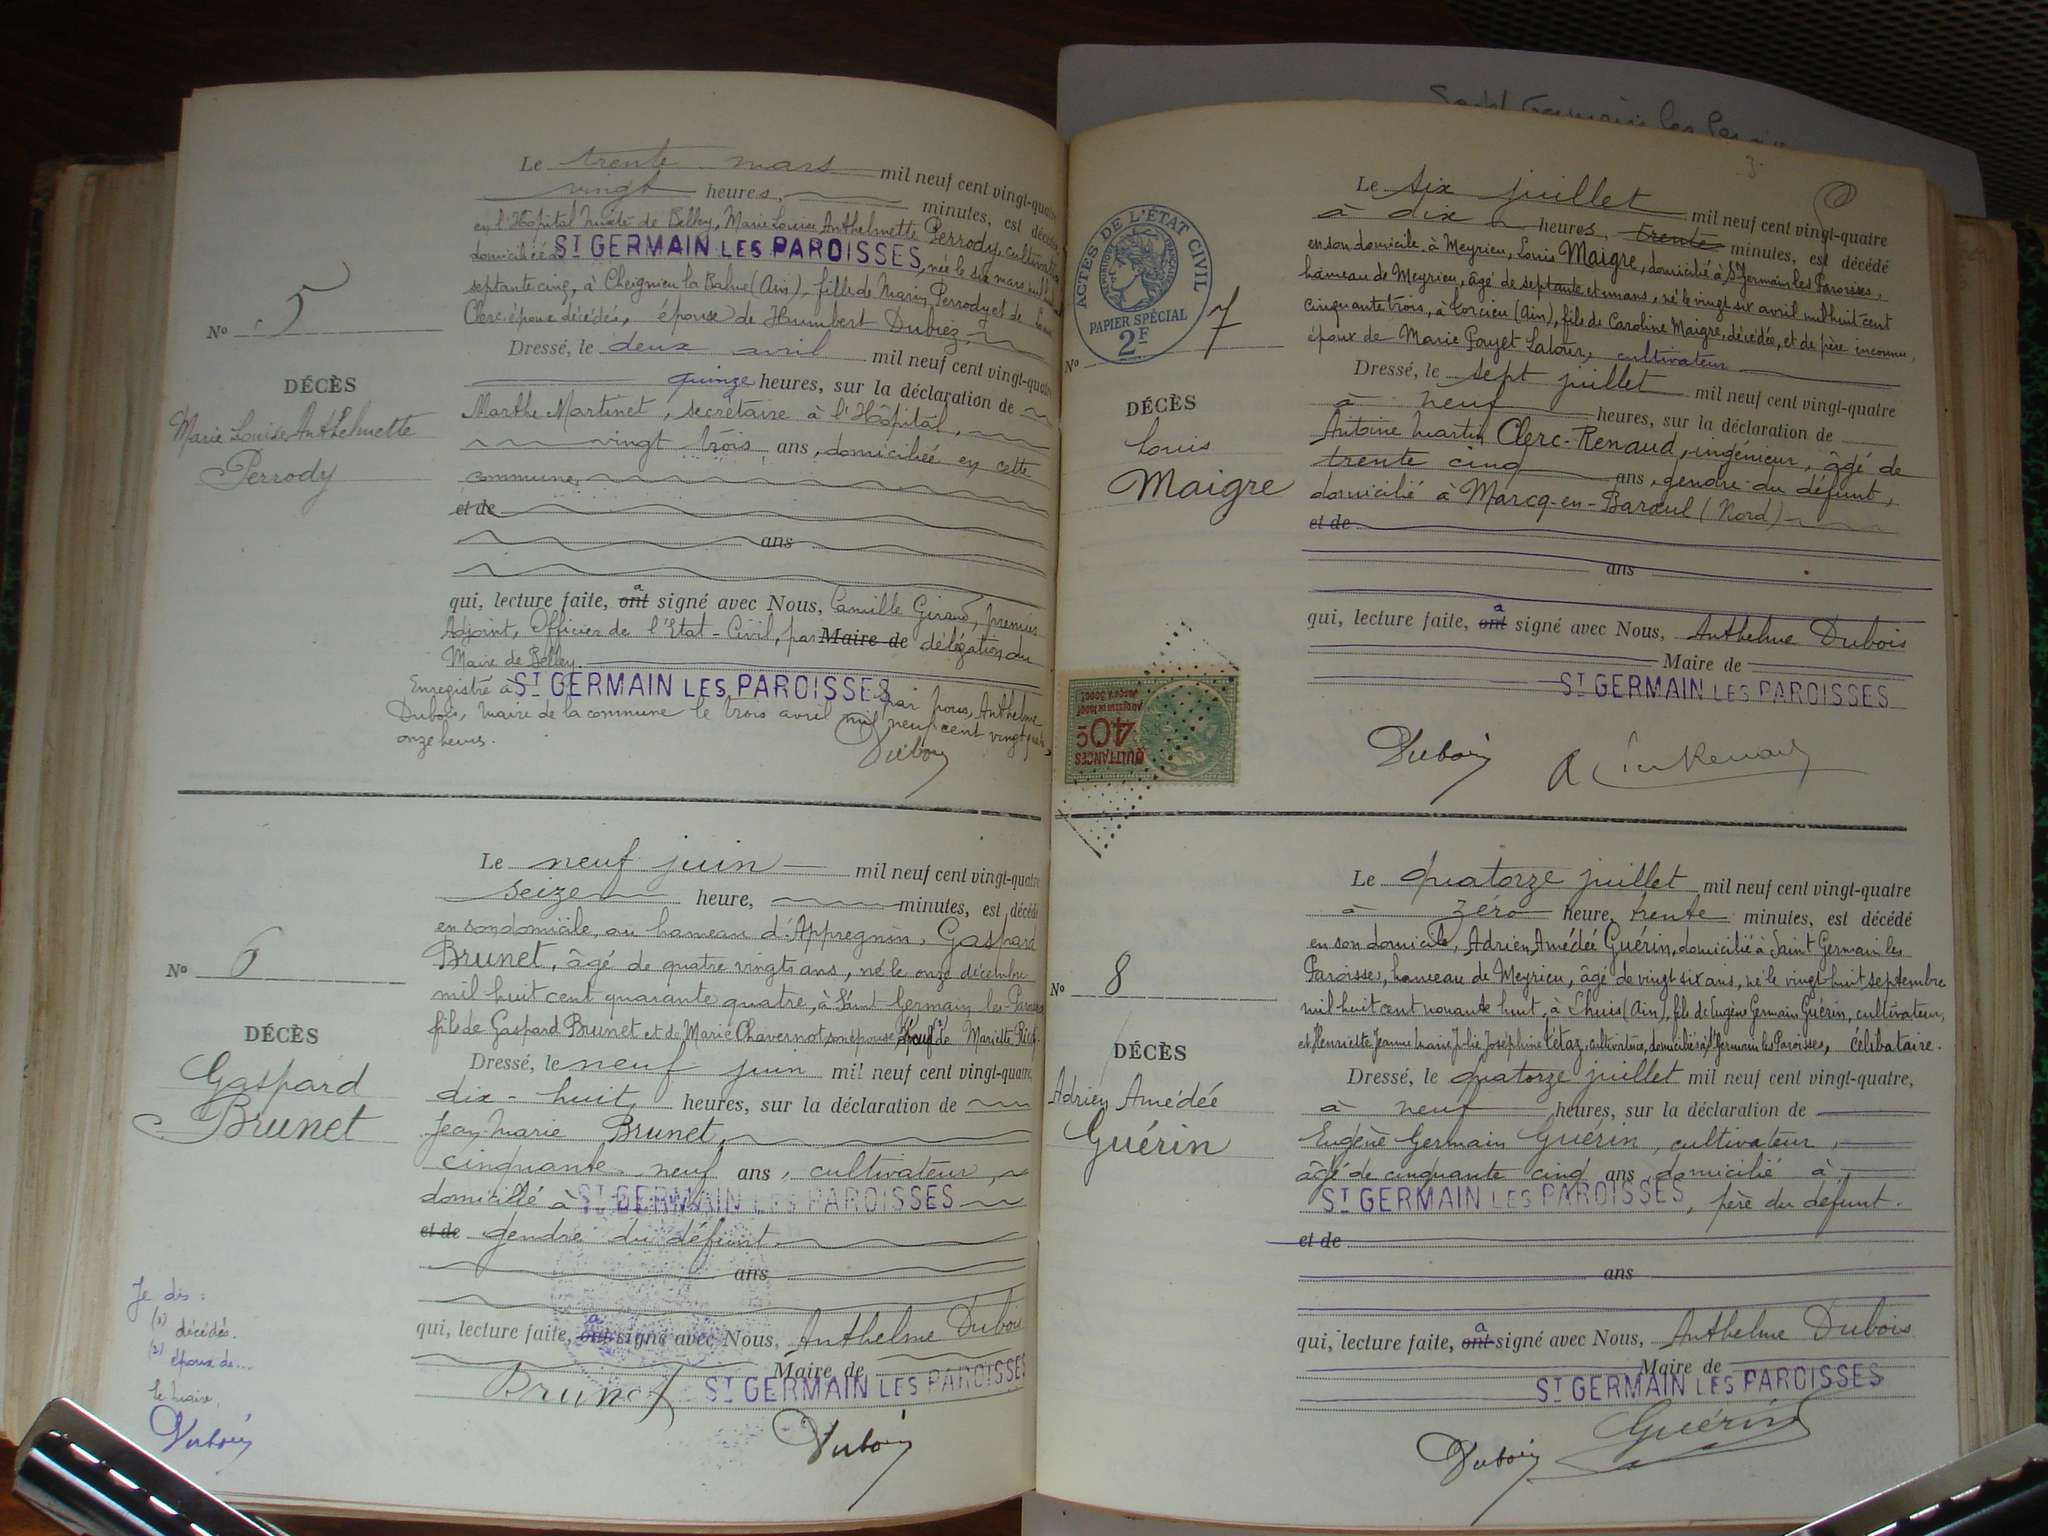 Le trente mars mil neuf cent vingt-quatre
vingt heures, minutes, est décédée
en l'Hôpital de Belley, Marie Louise Anthelmette Perrody, cultivatrice
domiciliée à ST GERMAIN LES PAROISSES, née le six mars mil huit cent
septante cinq, à Cheignieu la Balme (Ain), fille de Marin Perrody et de
Clerc époux décédés, épouse de Humbert Dubiez,
No 5
Dressé, le deux avril mil neuf cent vingt-quatre
quinze heures, sur la déclaration de
DÉCÈS
Marie Louise Anthelmette
Perrody
Marthe Martinet, secrétaire à l'Hôpital,
vingt trois ans, domiciliée en cette
commune,
et de
ans
qui, lecture faite, ont a signé avec Nous, Camille Giraud, premier
Adjoint, Officier de l'Etat-Civil, par Maire de délégation du
Maire de Belley.
Enregistré à ST GERMAIN LES PAROISSES par nous, Anthelme
Dubois, Maire de la commune le trois avril mil neuf cent vingt quatre,
onze heures.
Dubois
Le neuf juin mil neuf cent vingt-quatre
seize heure, minutes, est décédé
en son domicile, au hameau d'Appregnin, Gaspard
Brunet, âgé de quatre vingts ans, né le onze décembre
mil huit cent quarante quatre, à Saint Germain les Paroisses
fils de Gaspard Brunet et de Marie Chavernot, son épouse, de Mariette
No 6
DÉCÈS
Gaspard
Brunet
Dressé, le neuf juin mil neuf cent vingt-quatre,
dix-huit heures, sur la déclaration de
Jean-Marie Brunet,
cinquante neuf ans, cultivateur,
domicilié à ST GERMAIN LES PAROISSES
et de gendre du défunt
ans
qui, lecture faite, ont a signé avec Nous, Anthelme Dubois
Maire de
Brunet ST GERMAIN LES PAROISSES
Dubois
Je dis :
(1) décédés.
(2) époux de...
le maire,
Dubois
3.
Le six juillet mil neuf cent vingt-quatre
à dix heures, trente minutes, est décédé
en son domicile, à Meyrieu, Louis Maigre, domicilié à St Germain les Paroisses,
hameau de Meyrieu, âgé de septante et un ans, né le vingt six avril mil huit cent
cinquante trois, à Torcieu (Ain), fils de Caroline Maigre, décédée, et de père inconnu,
époux de Marie Payet Latour, cultivateur
ACTES DE L'ÉTAT CIVIL
RÉPUBLIQUE FRANÇAISE
PAPIER SPÉCIAL
2F
No 7
DÉCÈS
Louis
Maigre
Dressé, le sept juillet mil neuf cent vingt-quatre
à neuf heures, sur la déclaration de
Antoine Martin Clerc-Renaud, ingénieur, âgé de
trente cinq ans, gendre du défunt,
domicilié à Marcq-en-Barœul (Nord)
et de
ans
qui, lecture faite, ont a signé avec Nous, Anthelme Dubois
Maire de
ST GERMAIN LES PAROISSES
QUITTANCES
40c
Dubois
Le quatorze juillet mil neuf cent vingt-quatre
à zéro heure, trente minutes, est décédé
en son domicile, Adrien Amédée Guérin, domicilié à Saint Germain les
Paroisses, hameau de Meyrieu, âgé de vingt six ans, né le vingt huit septembre
mil huit cent nonante huit, à Lhuis (Ain), fils de Eugène Germain Guérin, cultivateur,
et Henriette Jeanne Marie Julie Joséphine Tétaz, cultivatrice, domiciliés à St Germain les Paroisses, célibataire.
No 8
DÉCÈS
Adrien Amédée
Guérin
Dressé, le quatorze juillet mil neuf cent vingt-quatre,
à neuf heures, sur la déclaration de
Eugène Germain Guérin, cultivateur,
âgé de cinquante cinq ans domicilié à
ST GERMAIN LES PAROISSES, père du défunt.
et de
ans
qui, lecture faite, ont a signé avec Nous, Anthelme Dubois
Maire de
ST GERMAIN LES PAROISSES
Dubois Guérin